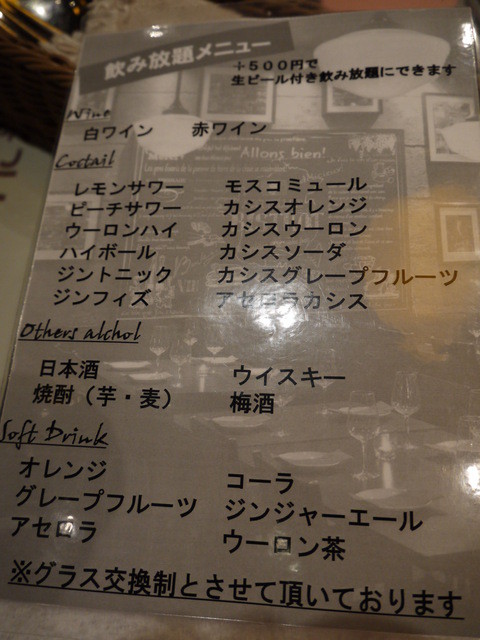 飲み放題メニュー
+500円で
生ビール付き飲み放題にできます
Wine
白ワイン 赤ワイン
Coctail
レモンサワー モスコミュール
ピーチサワー カシスオレンジ
ウーロンハイ カシスウーロン
ハイボール カシスソーダ
ジントニック カシスグレープフルーツ
ジンフィズ アセロラカシス
Others alchol
日本酒 ウイスキー
焼酎（芋・麦） 梅酒
Soft Drink
オレンジ コーラ
グレープフルーツ ジンジャーエール
アセロラ ウーロン茶
※グラス交換制とさせて頂いております
Allons bien!